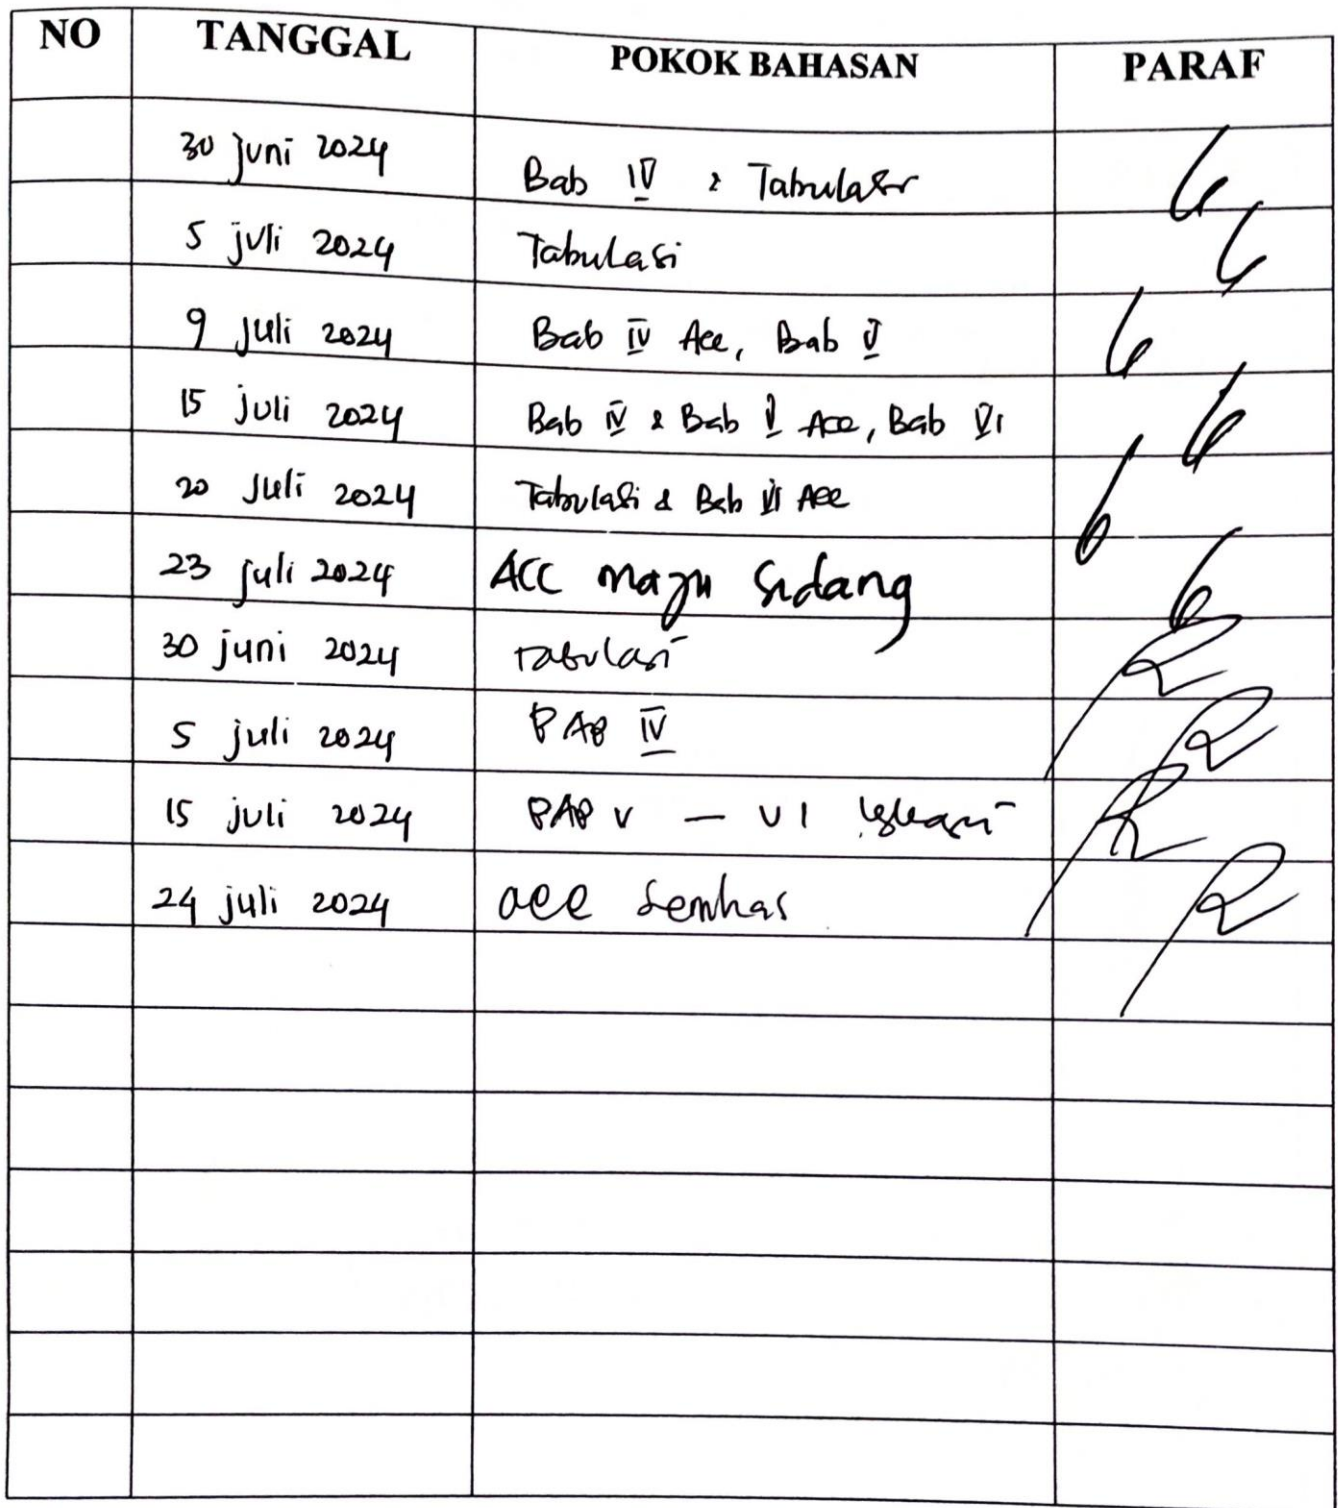 NO TANGGAL POKOK BAHASAN PARAF
30 Juni 2024 Bab IV & Tabulasi
5 juli 2024 Tabulasi
9 Juli 2024 Bab IV Acc, Bab V
15 juli 2024 Bab IV & Bab V Acc, Bab VI
20 Juli 2024 Tabulasi & Bab VI Acc
23 juli 2024 ACC maju Sidang
30 juni 2024 tabulasi
5 juli 2024 BAB IV
15 juli 2024 BAB V - VI
24 juli 2024 acc Semhas